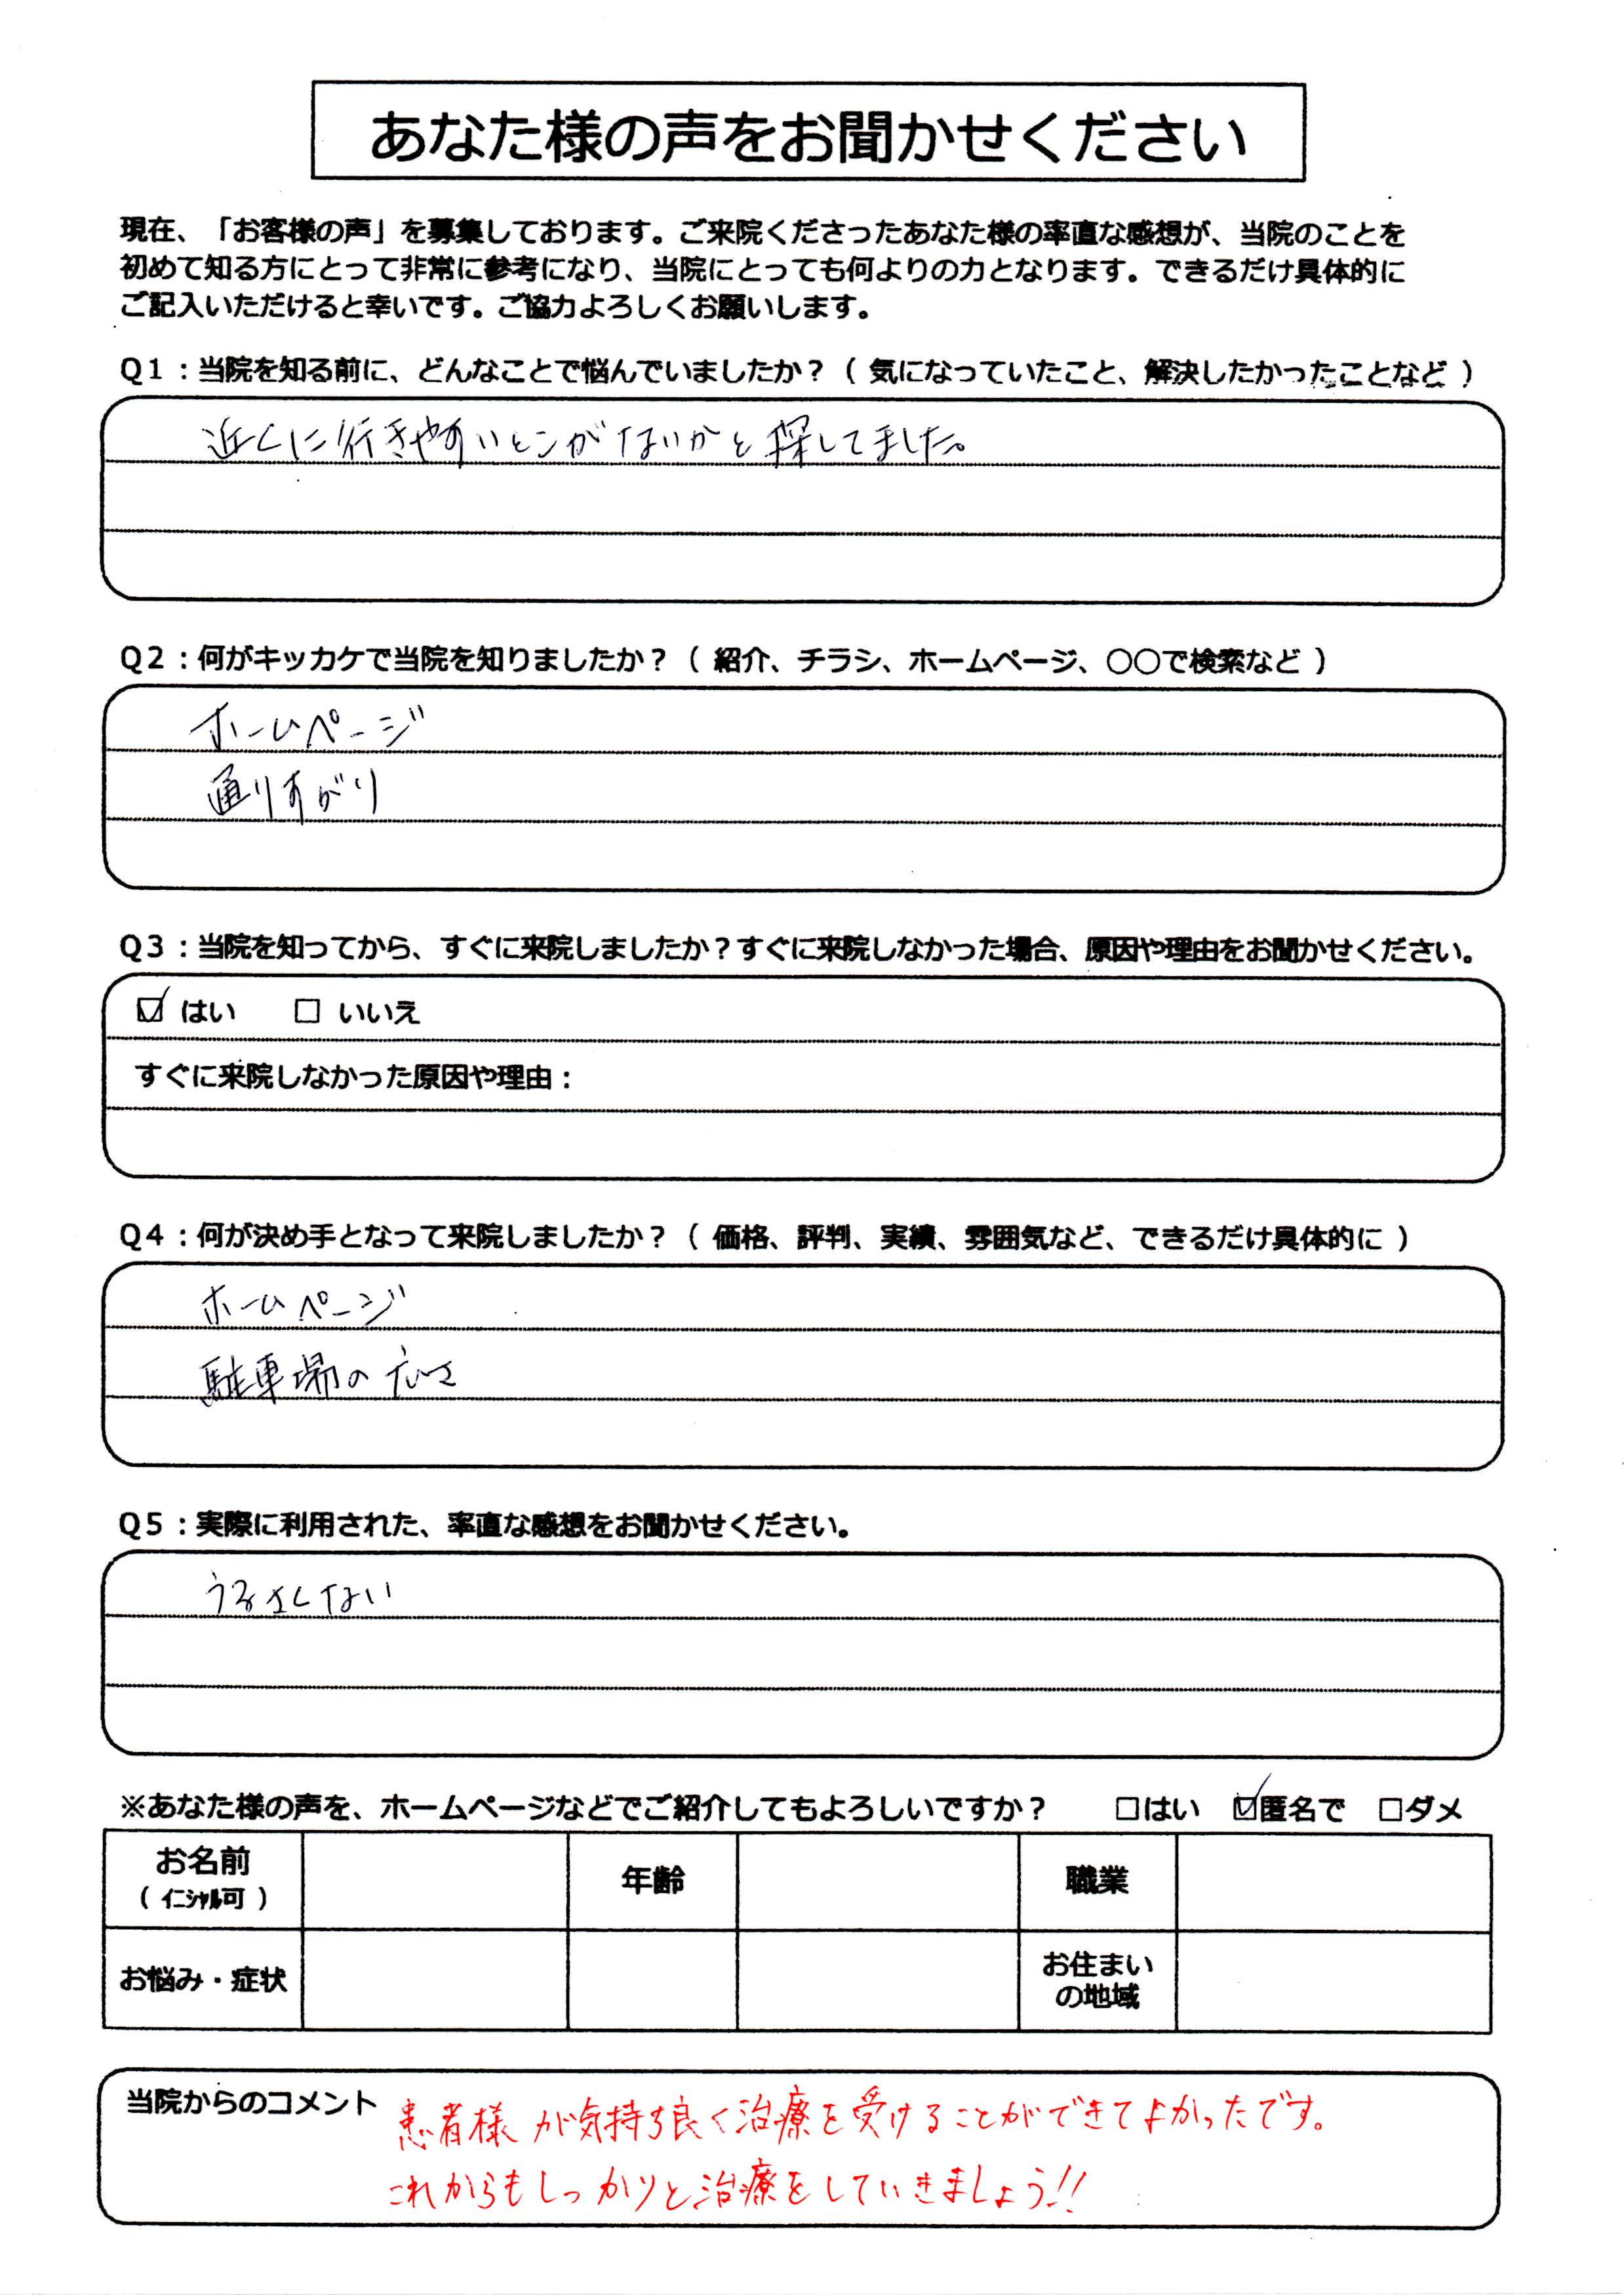 あなた様の声をお聞かせください
現在、「お客様の声」を募集しております。ご来院くださったあなた様の率直な感想が、当院のことを
初めて知る方にとって非常に参考になり、当院にとっても何よりの力となります。できるだけ具体的に
ご記入いただけると幸いです。ご協力よろしくお願いします。
Q1：当院を知る前に、どんなことで悩んでいましたか？（ 気になっていたこと、解決したかったことなど ）
近くに行きやすいとこがないかと探してました。
Q2：何がキッカケで当院を知りましたか？（ 紹介、チラシ、ホームページ、〇〇で検索など ）
ホームページ
通りすがり
Q3：当院を知ってから、すぐに来院しましたか？すぐに来院しなかった場合、原因や理由をお聞かせください。
☑ はい □ いいえ
すぐに来院しなかった原因や理由：
Q4：何が決め手となって来院しましたか？（ 価格、評判、実績、雰囲気など、できるだけ具体的に ）
ホームページ
駐車場の広さ
Q5：実際に利用された、率直な感想をお聞かせください。
うるさくない
※あなた様の声を、ホームページなどでご紹介してもよろしいですか？ □はい ☑匿名で □ダメ
お名前 年齢 職業
（ イニシャル可 ）
お悩み・症状 お住まい
の地域
当院からのコメント 患者様が気持ち良く治療を受けることができてよかったです。
これからもしっかりと治療をしていきましょう!!